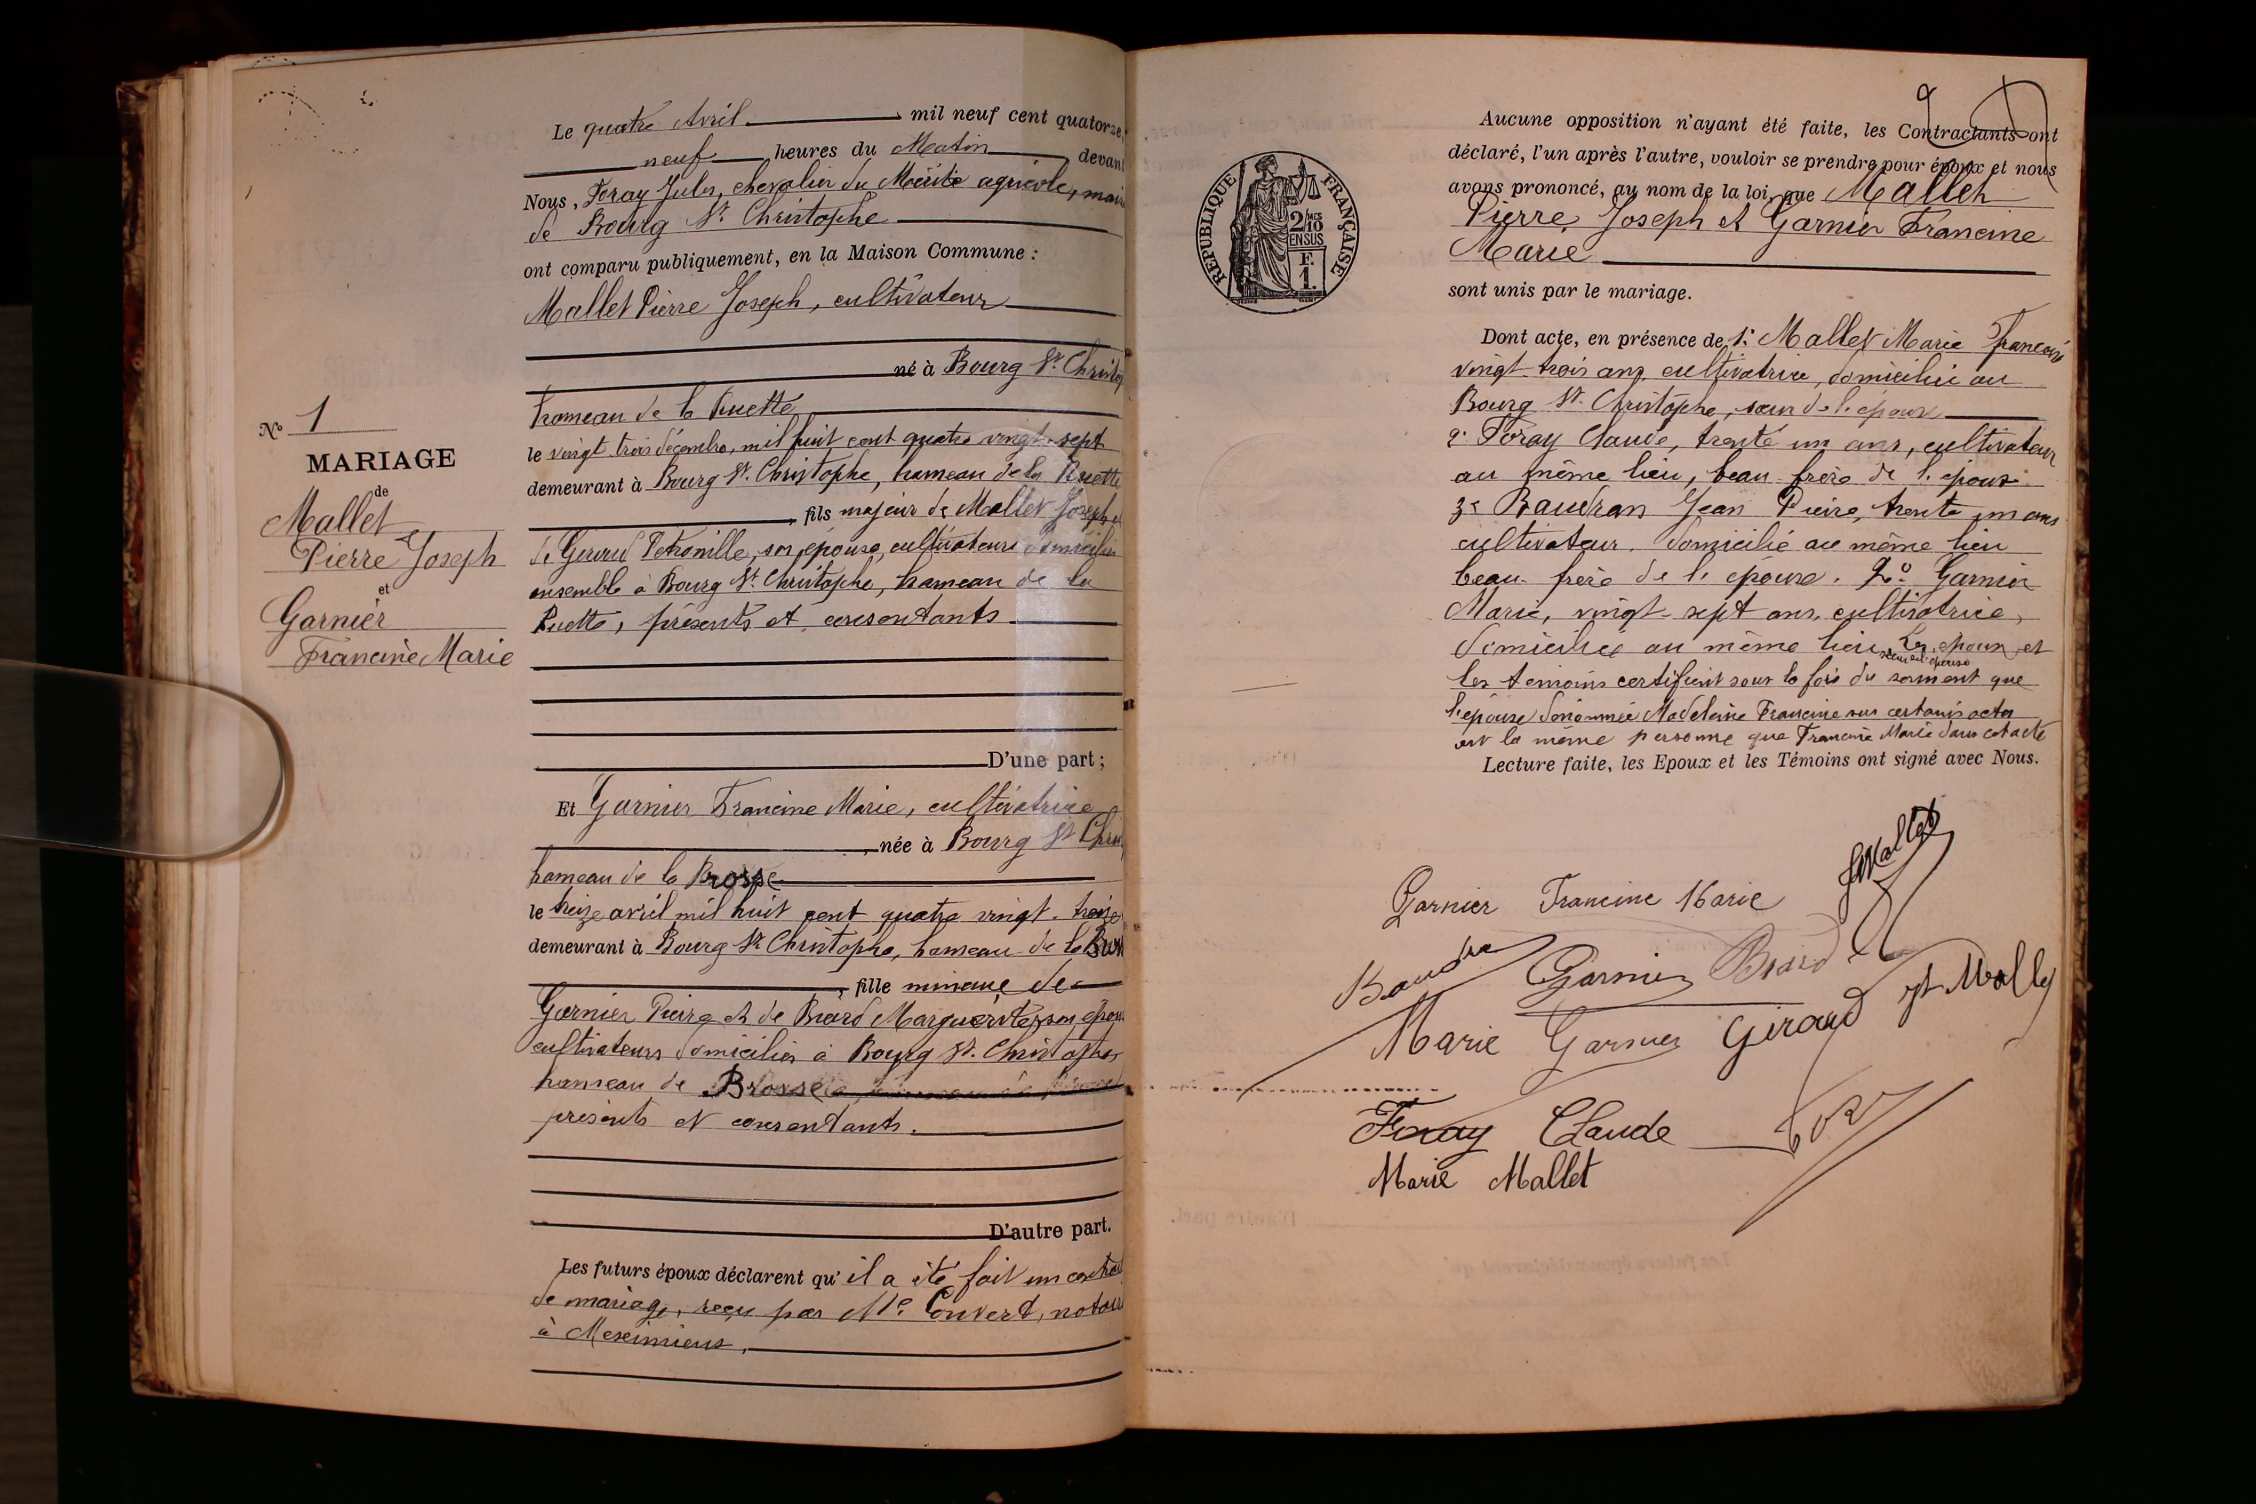 Le quatre Avril mil neuf cent quatorze,
neuf heures du Matin devant
Nous, Foray Jules, chevalier du Mérite agricole, maire
de Bourg St. Christophe
ont comparu publiquement, en la Maison Commune :
Mallet Pierre Joseph, cultivateur
né à Bourg St. Christop
hameau de la Ruette
le vingt trois décembre, mil huit cent quatre vingt-sept
demeurant à Bourg St. Christophe, hameau de la Ruette
, fils majeur de Mallet Joseph et
de Giraud Petronille, son épouse, cultivateurs domiciliés
ensemble à Bourg St. Christophe, hameau de la
Ruette, présents et consentants
D'une part ;
Et Garnier Francine Marie, cultivatrice
, née à Bourg St Chris
hameau de la Brosse
le treize avril mil huit cent quatre vingt-treize
demeurant à Bourg St Christophe, hameau de la Bross
, fille mineure de
Garnier Pierre et de Biard Marguerite, son épouse
cultivateurs domiciliés à Bourg St. Christophe,
hameau de Brosse
présents et consentants.
D'autre part.
Les futurs époux déclarent qu'il a été fait un contrat
de mariage, reçu par Me. Couvert, notaire
à Meximieux.
No 1
MARIAGE
de
Mallet
Pierre Joseph
et
Garnier
Francine Marie
Aucune opposition n'ayant été faite, les Contractants ont
déclaré, l'un après l'autre, vouloir se prendre pour époux et nous
avons prononcé, au nom de la loi, que Mallet
Pierre Joseph et Garnier Francine
Marie
sont unis par le mariage.
Dont acte, en présence de 1º Mallet Marie Françoise
vingt-trois ans, cultivatrice, domiciliée au
Bourg St. Christophe, sœur de l'époux
2º Foray Claude, trente un ans, cultivateur
au même lieu, beau frère de l'époux
3º Baudran Jean Pierre, trente un ans
cultivateur. domicilié au même lieu
beau-frère de l'épouse. 4º Garnier
Marie, vingt-sept ans, cultivatrice,
domiciliée au même lieu sœur de l'épouse Les époux et
les témoins certifient sous la foi du serment que
l'épouse dénommée Madeleine Francine sur certains actes
est la même personne que Francine Marie dans cet acte
Lecture faite, les Epoux et les Témoins ont signé avec Nous.
RÉPUBLIQUE FRANÇAISE
2/10 MES
EN SUS
F.
1.
JMallet
Garnier Francine Marie
Garnier Biard
Marie Garnier Giraud
Foray Claude
Marie Mallet